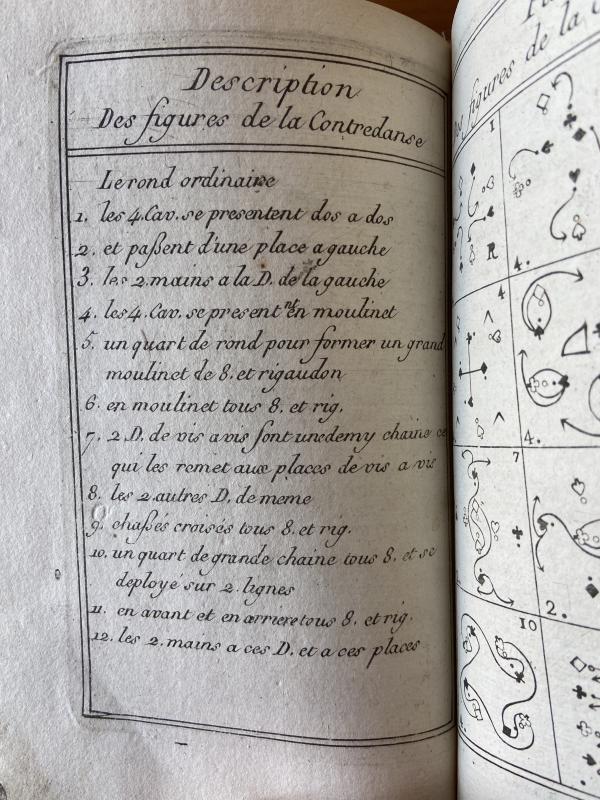 Description
Des figures de la Contredanse
Le rond ordinaire
1. les 4. Cav. se presentent dos a dos
2. et paßent d'une place a gauche
3. les 2. mains a la D. de la gauche
4. les 4. Cav. se present^nt en moulinet
5. un quart de rond pour former un grand
moulinet de 8. et rigaudon
6. en moulinet tous 8. et rig.
7. 2 D. de vis a vis font une demy chaine ce
qui les remet aux places de vis a vis
8. les 2 autres D. de meme
9. chaßés croisés tous 8. et rig.
10. un quart de grande chaine tous 8. et se
deployé sur 2. lignes
11. en avant et en arriere tous 8. et rig.
12. les 2. mains a ces D. et a ces places
figures de la
1
R
4.
4
4.
7
2.
10